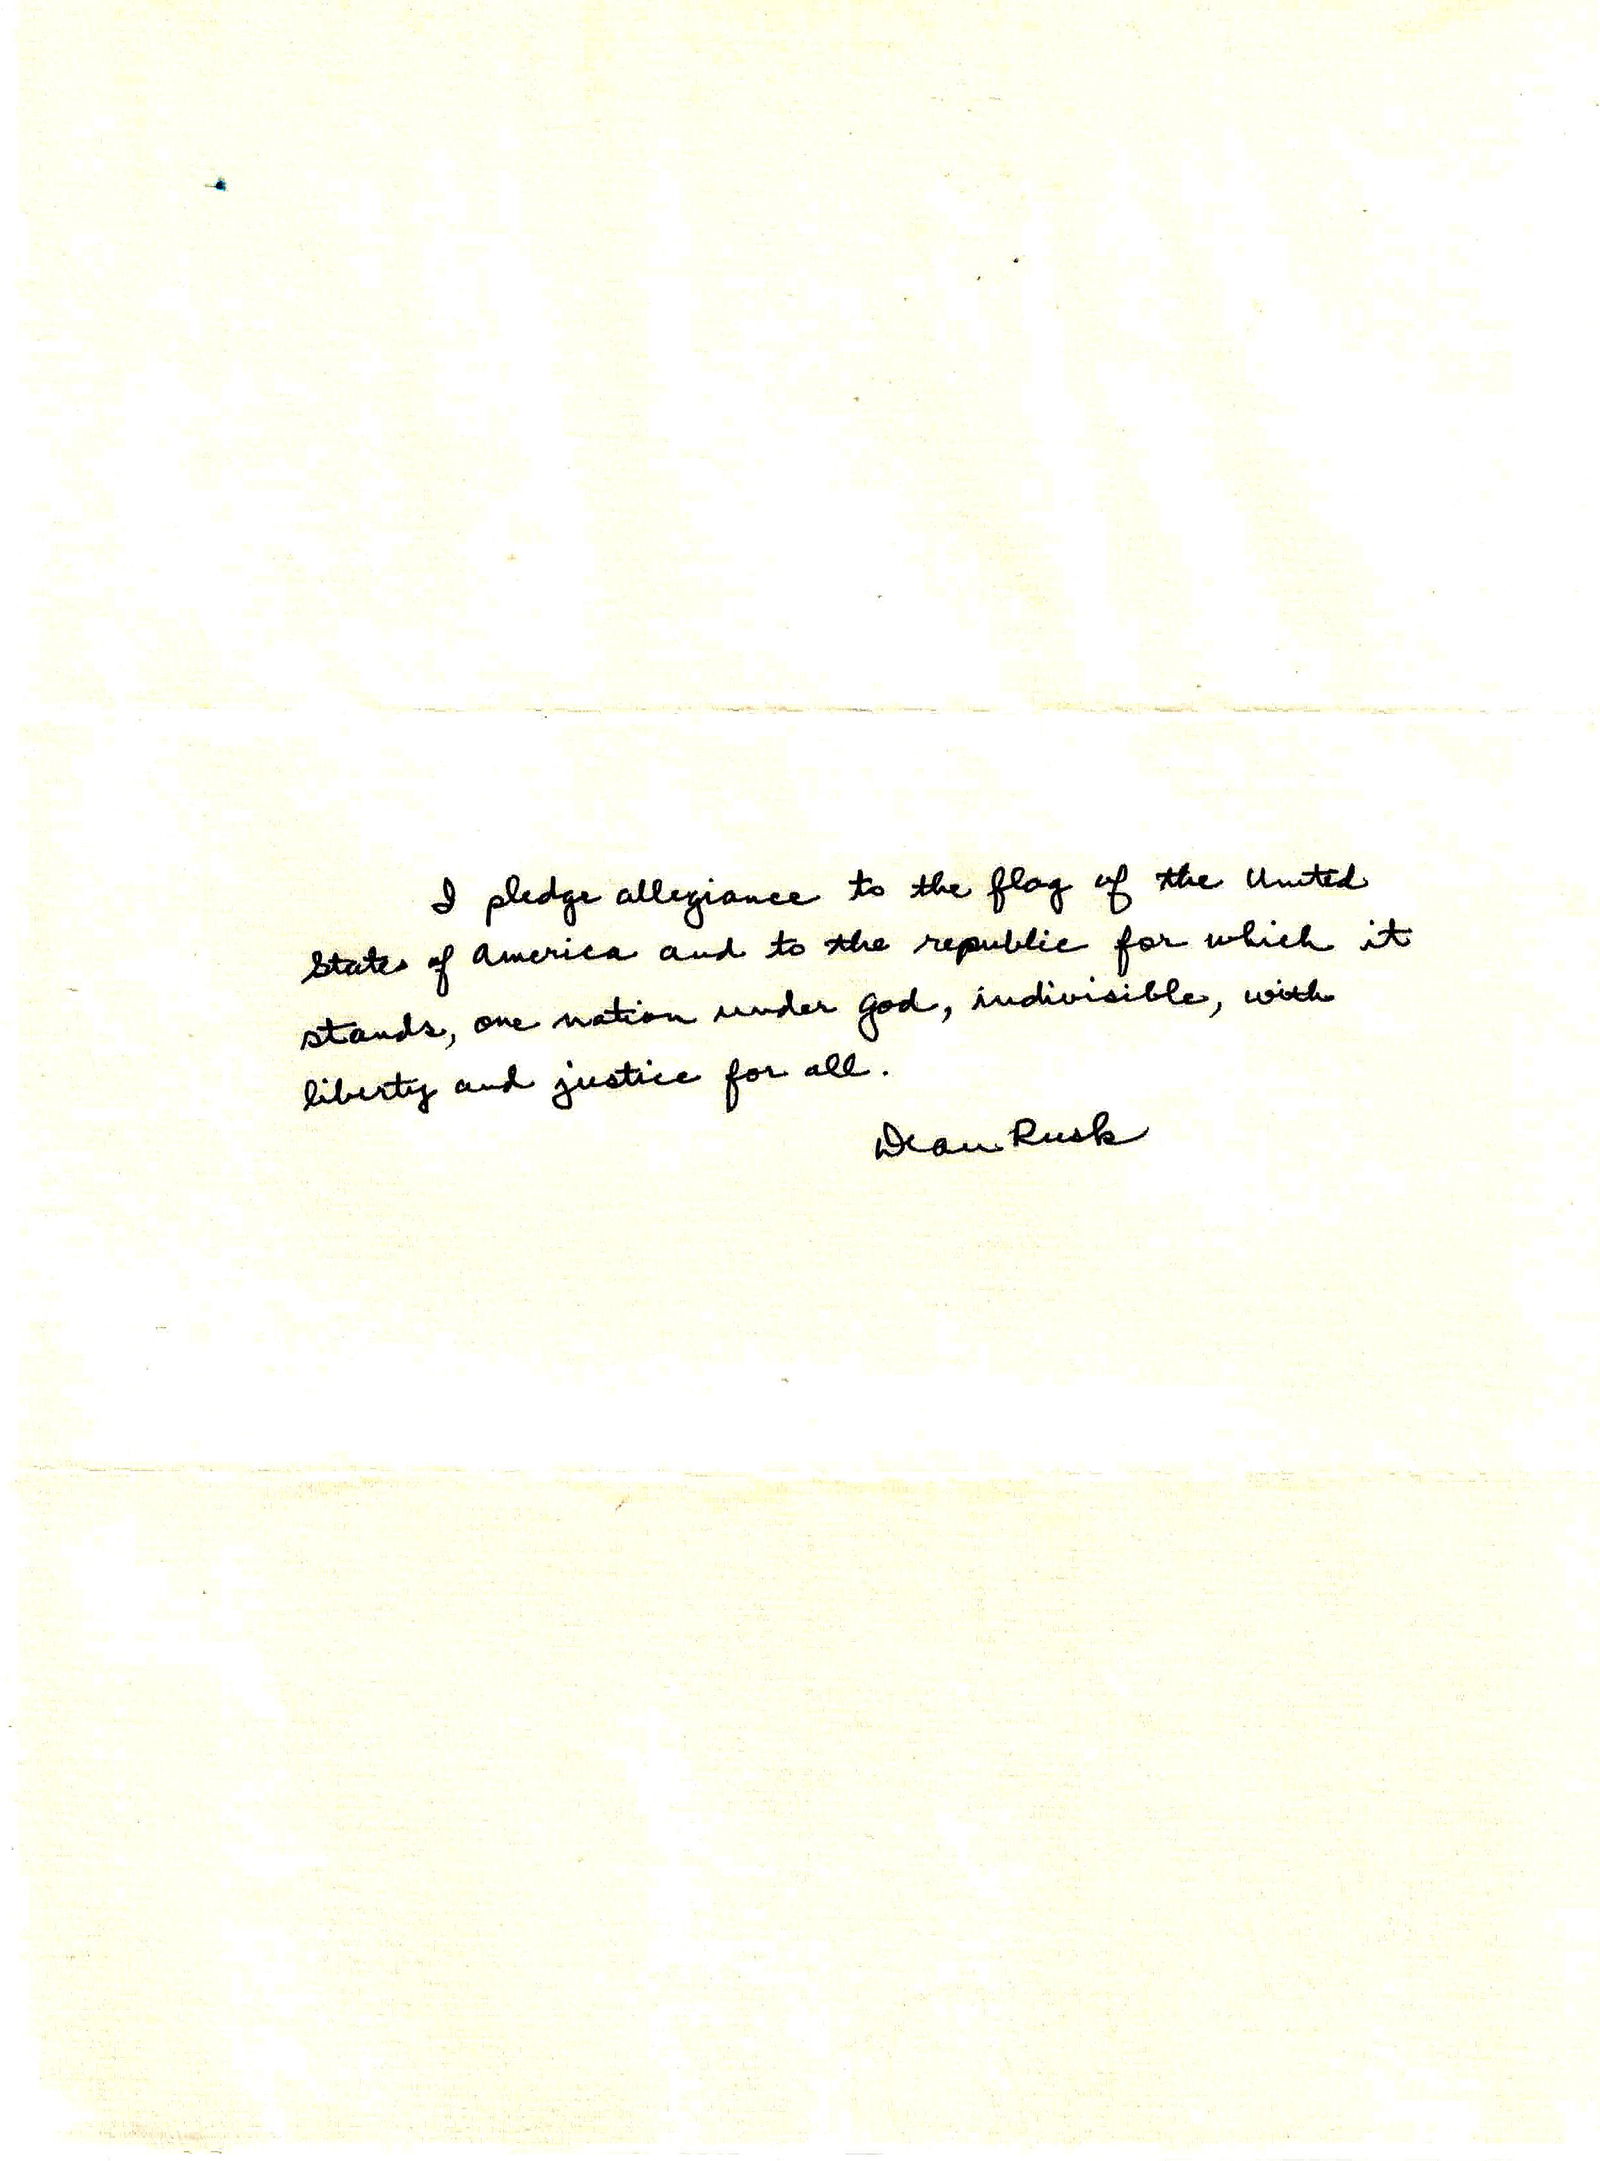 I pledge allegiance to the flag of the United
States of America and to the republic for which it
stands, one nation under God, indivisible, with
liberty and justice for all.
Dean Rusk